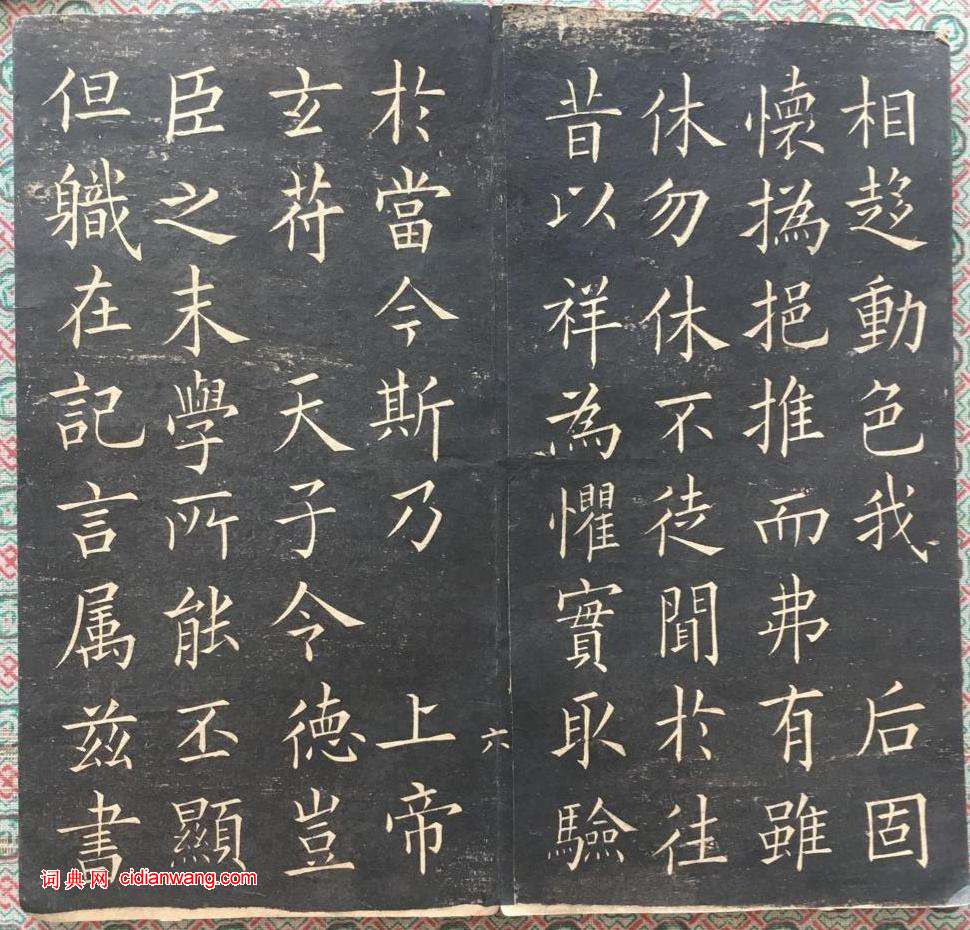 相趍動色我 后固
懷撝挹推而弗有雖
休勿休不徒聞於往
昔以祥為懼實取驗
六
於當今斯乃 上帝
玄苻 天子令德豈
臣之末學所能丕顯
但軄在記言属兹書
词典网 cidianwang.com